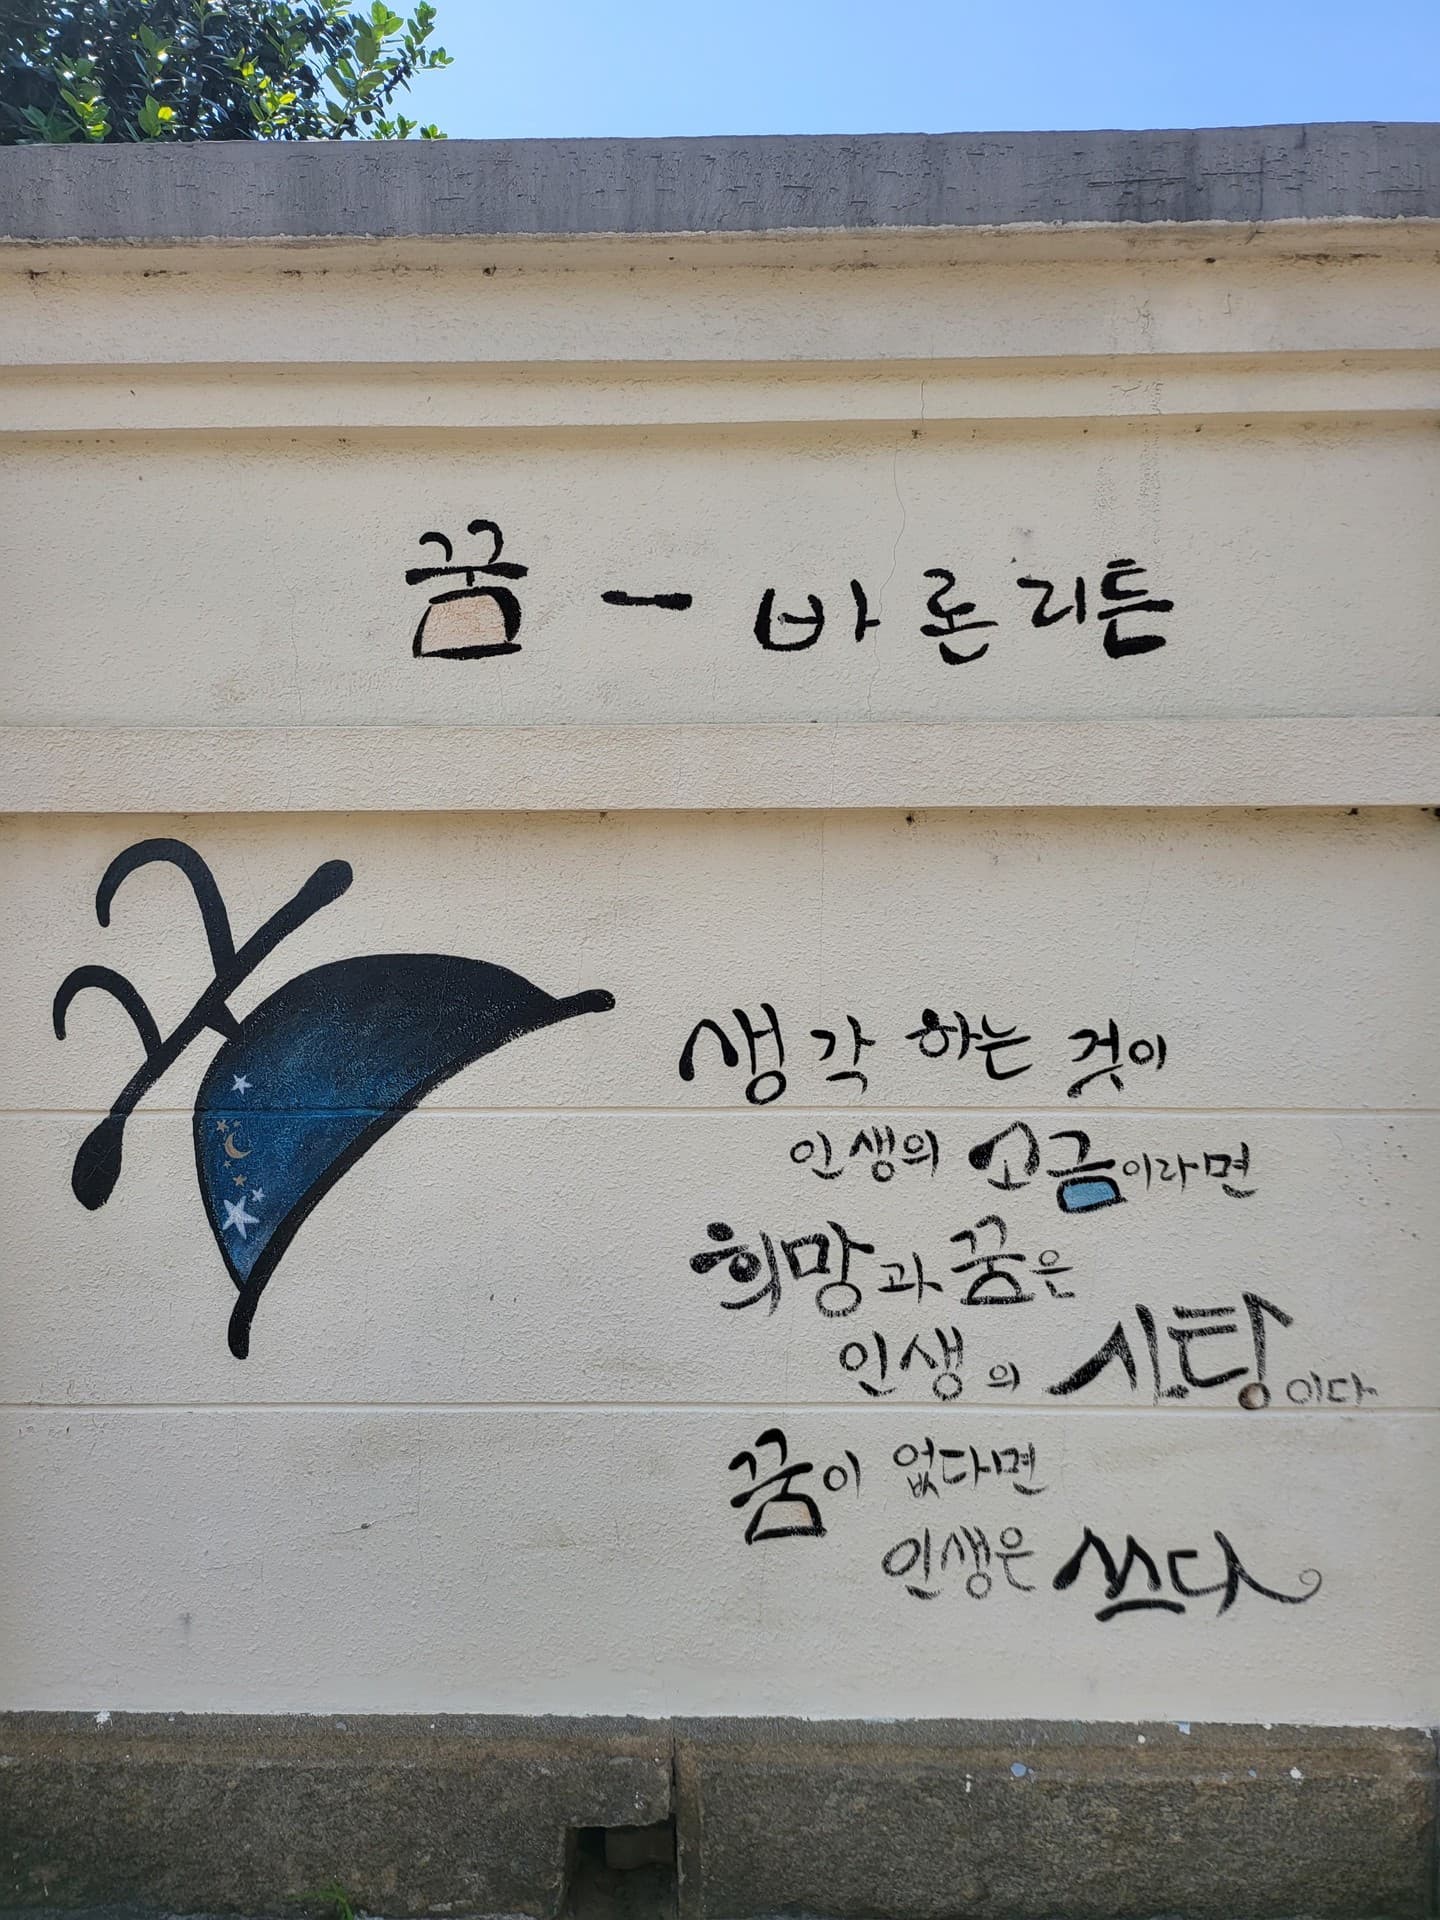 꿈 - 바론리튼
생각하는 것이
인생의 소금이라면
희망과 꿈은
인생의 사탕이다
꿈이 없다면
인생은 쓰다
꿈